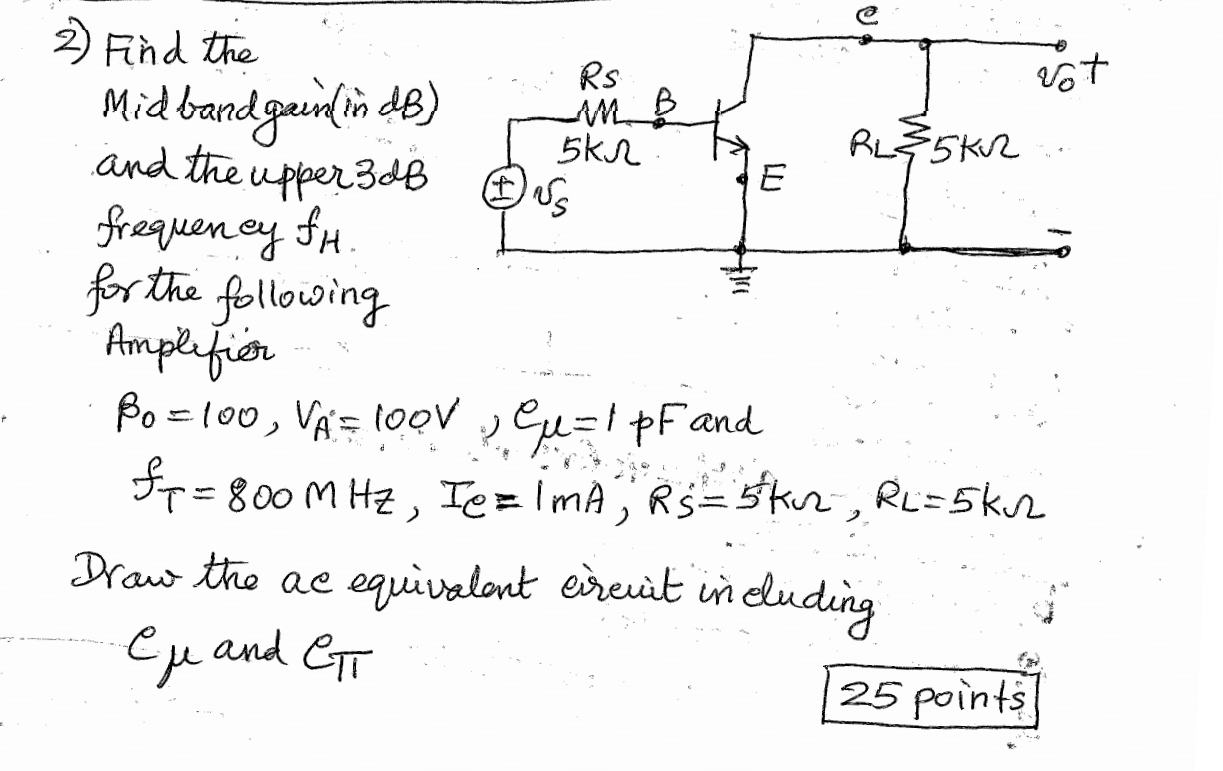 2) Find the
Midband gain (in dB)
and the upper 3dB
frequency fH.
for the following
Amplifier
Rs
5kΩ
B
C
E
vs
RL
5kΩ
vo
+
-
β0 = 100, VA = 100V, Cμ = 1 pF and
fT = 800 MHz, Ic = 1mA, Rs = 5kΩ, RL = 5kΩ
Draw the ac equivalent circuit including
Cμ and Cπ
25 points